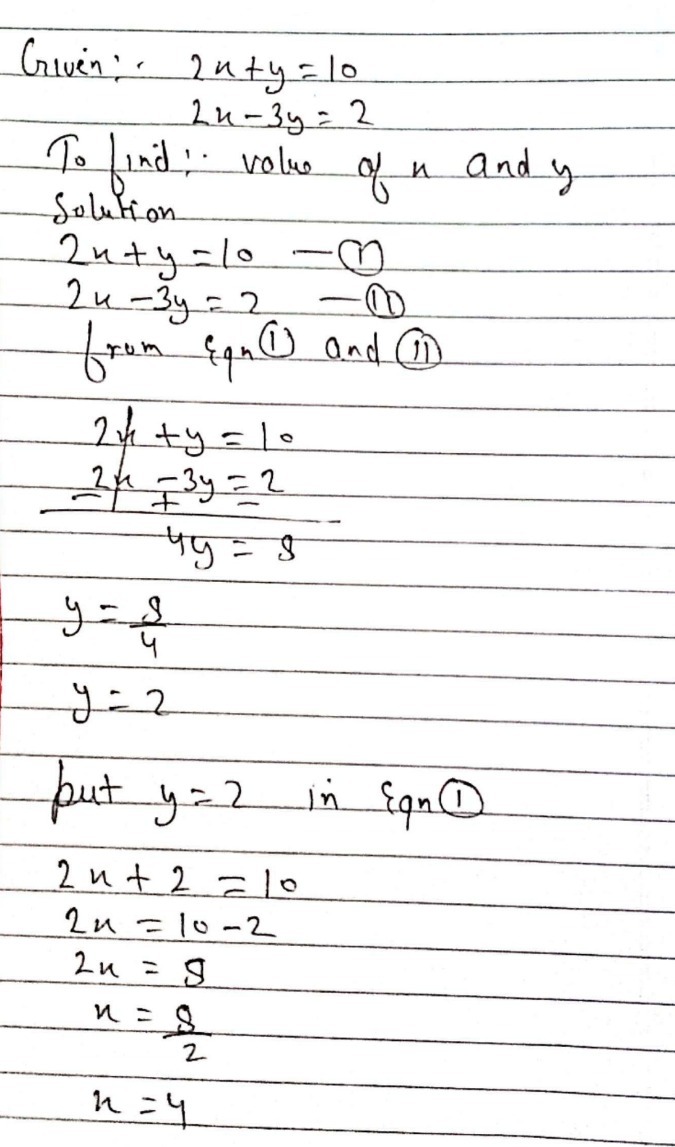 Given:- 2x+y=10
2x-3y=2
To find:- value of x and y
Solution
2x+y=10 —(I)
2x-3y=2 —(II)
from Eqn(I) and (II)
2x+y=10
2x-3y=2
- + -
4y=8
y=8/4
y=2
put y=2 in Eqn(I)
2x+2=10
2x=10-2
2x=8
x=8/2
x=4